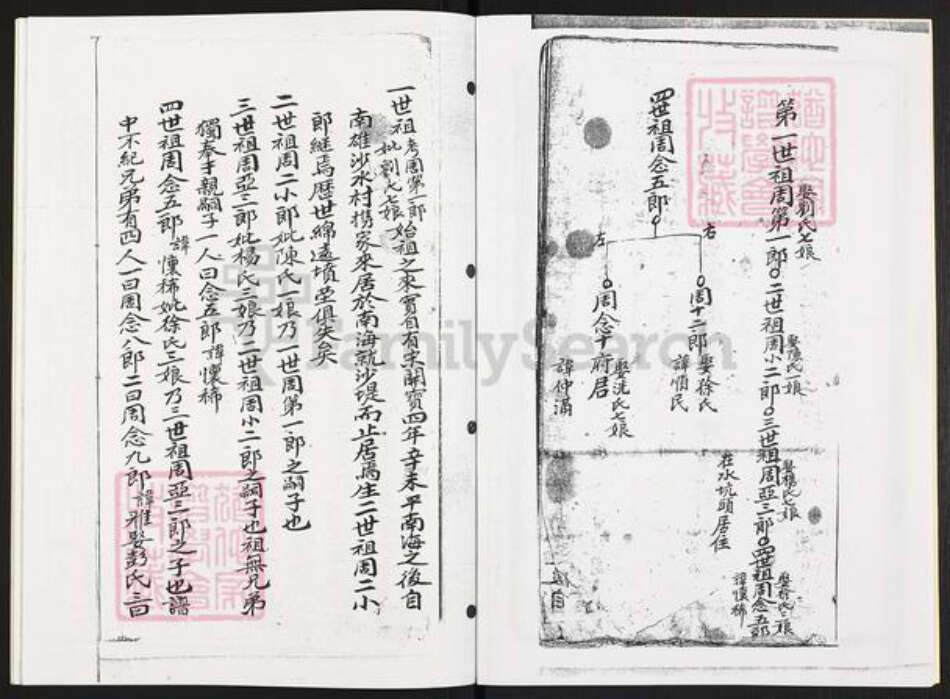 娶劉氏七娘
第一世祖周第一郎
娶陳氏一娘
二世祖周小二郎
娶楊氏七娘
三世祖周亞三郎
娶徐氏三娘
四世祖周念五郎
諱懷稀
在水坑頭居住
四世祖周念五郎
右
周十二郎
娶徐氏
諱順民
左
周念十府君
娶洗氏七娘
諱仲滿
一世祖考周第一郎妣劉七娘始祖之來實自有宋開寶四年辛未平南海之後自
南雄沙水村携家來居於南海就沙堤而止居焉生二世祖周二小
郎継焉歴世綿遠墳塋俱失矣
二世祖周二小郎妣陳氏一娘乃一世周第一郎之嗣子也
三世祖周亞三郎妣楊氏三娘乃二世祖周小二郎之嗣子也祖無兄弟
獨奉于親嗣子一人曰念五郎諱懷稀
四世祖周念五郎諱懷稀妣徐氏三娘乃三世祖周亞三郎之子也譜
中不紀兄弟有四人一曰周念八郎二曰周念九郎諱雅娶彭氏三曰
FamilySearch